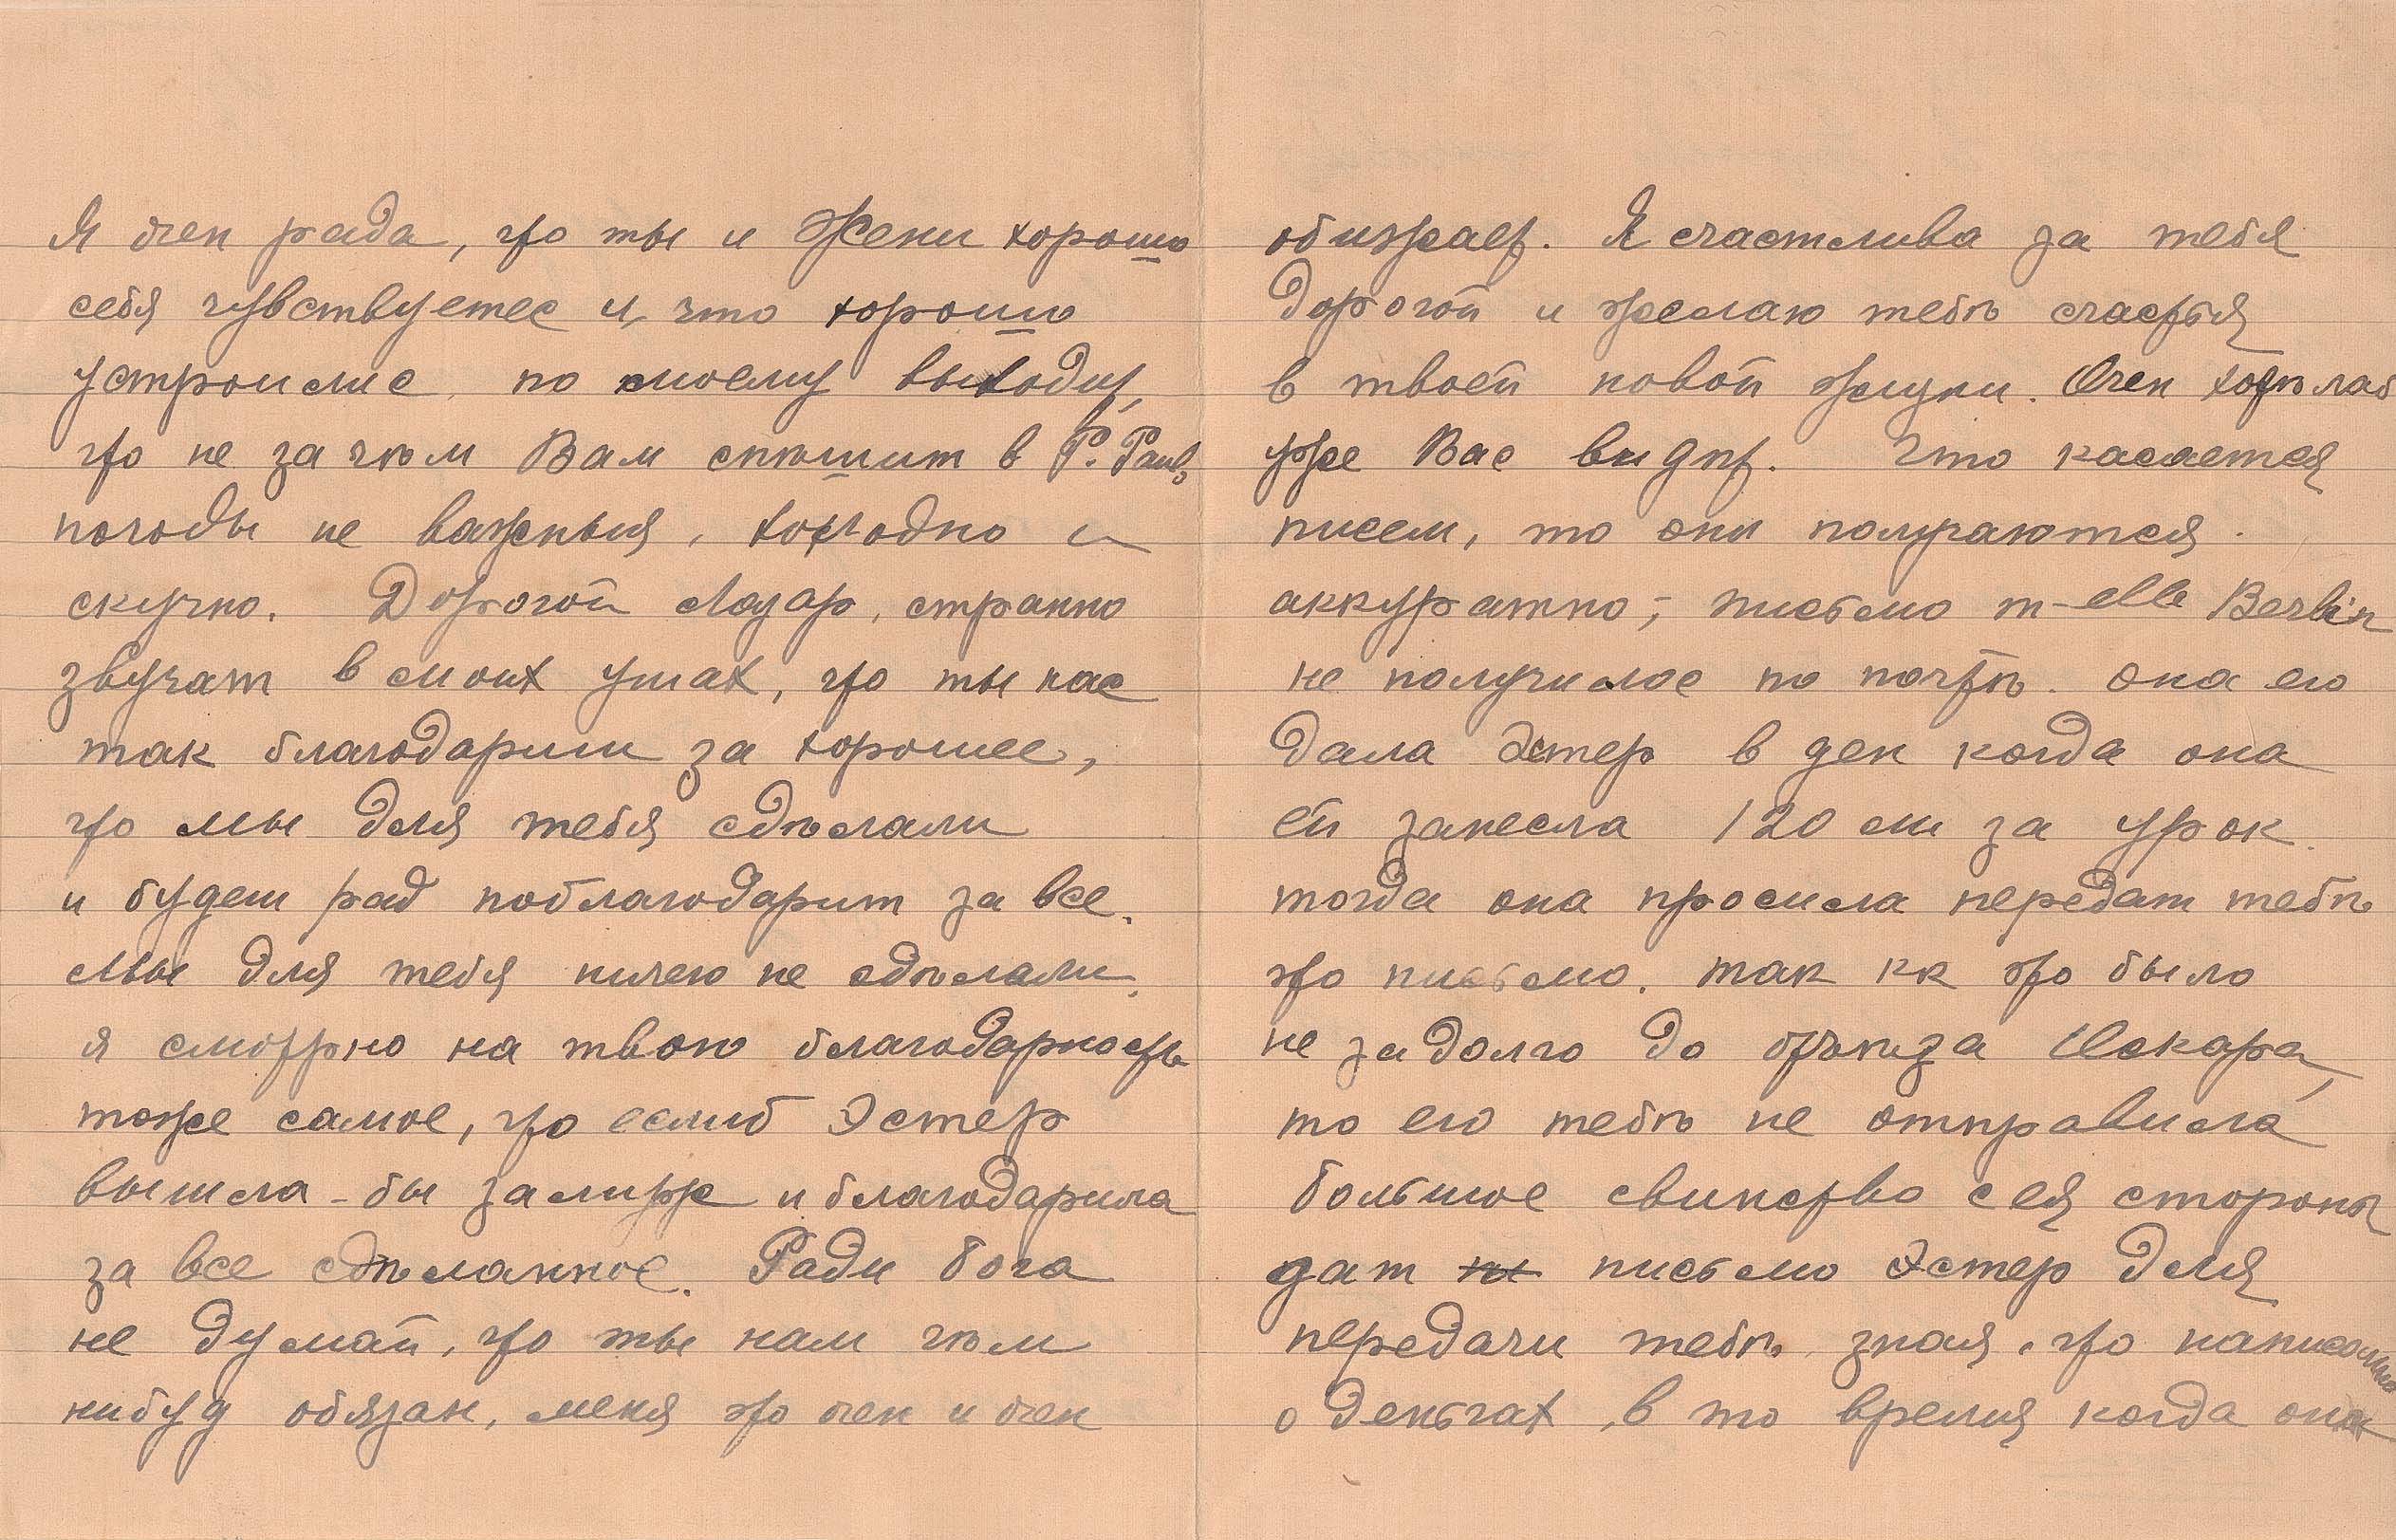 Я очен рада, что ты и Жени хорошо
себя чувствуетес и что хорошо
устроилис. по моему выходит,
что не зачѣм Вам спѣшит в P. Paulo
погоды не важныя, холодно и
скучно. Дорогой Лазар, странно
звучат в моих ушах, что ты нас
так благодариш за хорошее,
что мы для тебя сдѣлали
и будеш рад поблагодарит за все.
Мы для тебя ничего не сдѣлали,
я смотрю на твою благодарность
тоже самое, что еслиб Эстер
вышла-бы замуж и благодарила
за все сдѣланное. Ради бога
не думай, что ты нам чѣм
нибуд обязан, меня это очен и очен
обижает. Я счастлива за тебя
дорогой и желаю тебѣ счастья
в твоей новой жизни. Очен хотѣлаб
уже Вас видѣт. Что касается
писем, то они получаются
аккуратно; письмо m-elle Berlin
не получилос по почтѣ. она его
дала Эстер в ден когда она
ей занесла 120 ш за урок.
тогда она просила передат тебѣ
это письмо. так кк это было
не задолго до отъѣзда Оскара,
то его тебѣ не отправила
большое свинство с ея стороны
дат письмо Эстер для
передачи тебѣ, зная, что написанно
о деньгах, в то время когда она